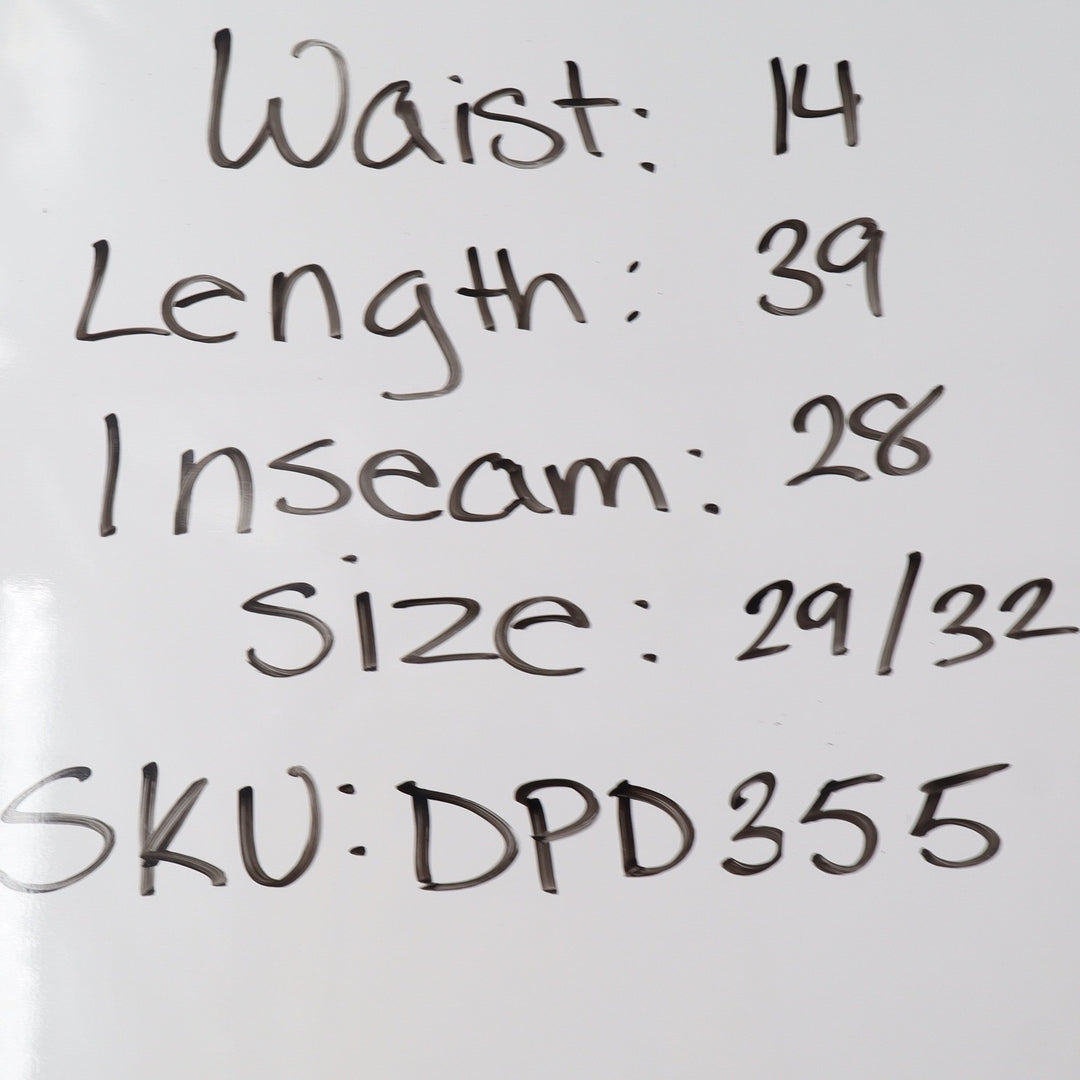 Waist: 14
Length: 39
Inseam: 28
Size: 29/32
SKU: DPD355